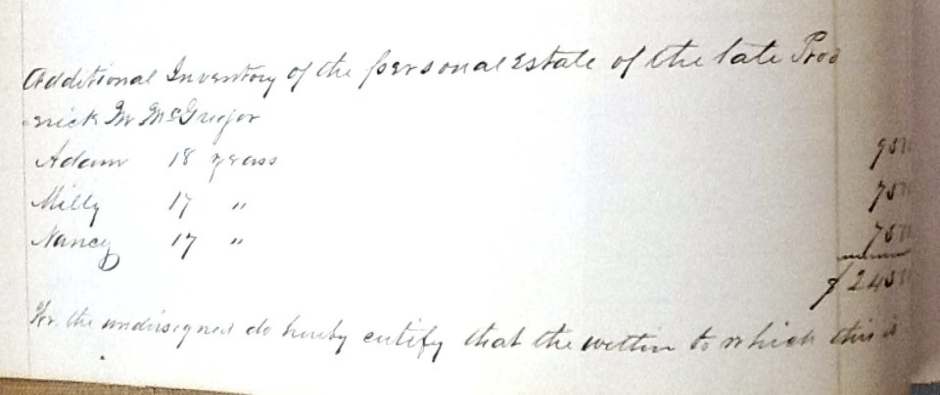 Additional Inventory of the personal Estate of the late Rod
erick M McGregor
Adam 18 years 950
Milly 17 " 750
Nancy 17 " 750
$ 2450
We the undersigned do hereby certify that the within to which this is